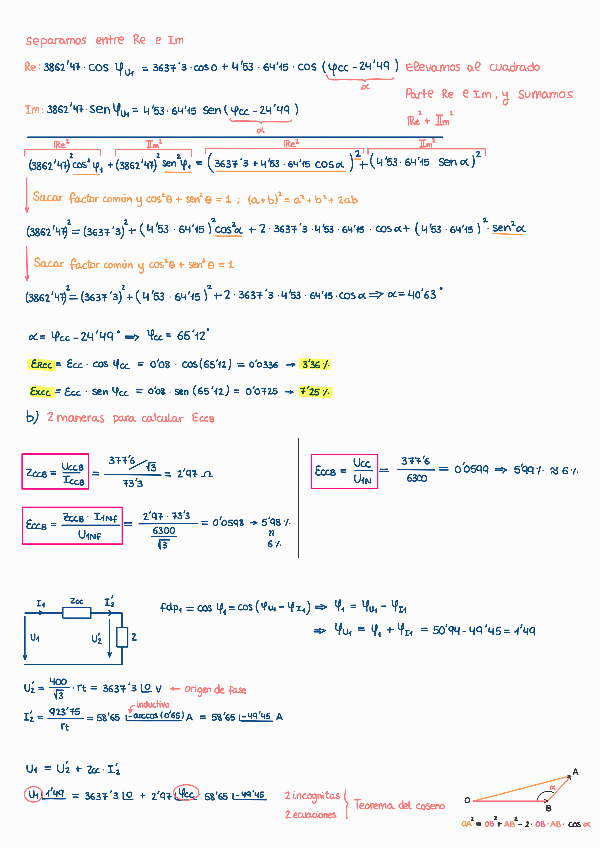 separamos entre Re e Im
Re: 3862'47 · cos φU1 = 3637'3 · cos 0 + 4'53 · 64'15 · cos (φcc - 24'49)
α
Elevamos al cuadrado
Parte Re e Im, y sumamos
Re² + Im²
Im: 3862'47 · sen φU1 = 4'53 · 64'15 sen (φcc - 24'49)
α
Re² Im² Re² Im²
(3862'47)² cos² φ1 + (3862'47)² sen² φ1 = (3637'3 + 4'53 · 64'15 cos α)² + (4'53 · 64'15 sen α)²
Sacar factor común y cos²θ + sen²θ = 1 ; (a+b)² = a² + b² + 2ab
(3862'47)² = (3637'3)² + (4'53 · 64'15)² cos²α + 2 · 3637'3 · 4'53 · 64'15 · cos α + (4'53 · 64'15)² · sen²α
Sacar factor común y cos²θ + sen²θ = 1
(3862'47)² = (3637'3)² + (4'53 · 64'15)² + 2 · 3637'3 · 4'53 · 64'15 · cos α ⇒ α = 40'63°
α = φcc - 24'49° ⇒ φcc = 65'12°
εRcc = εcc · cos φcc = 0'08 · cos(65'12) = 0'0336 → 3'36 %
εxcc = εcc · sen φcc = 0'08 · sen (65'12) = 0'0725 → 7'25 %
b) 2 maneras para calcular εccB
ZccB = UccB / IccB = (377'6 / √3) / 73'3 = 2'97 Ω
εccB = Ucc / U1N = 377'6 / 6300 = 0'0599 ⇒ 5'99 % ≈ 6 %
εccB = ZccB · I1Nf / U1Nf = 2'97 · 73'3 / (6300 / √3) = 0'0598 → 5'98 %
≈
6 %
I1 Zcc I2'
U1 U2' Z
fdp1 = cos φ1 = cos (φU1 - φI1) ⇒ φ1 = φU1 - φI1
⇒ φU1 = φ1 + φI1 = 50'94 - 49'45 = 1'49
U2' = 400 / √3 · rt = 3637'3 |0 V ← origen de fase
inductivo
I2' = 923'75 / rt = 58'65 |-arccos (0'65) A = 58'65 |-49'45 A
U1 = U2' + Zcc · I2'
U1 |1'49 = 3637'3 |0 + 2'97 |φcc 58'65 |-49'45
2 incognitas
2 ecuaciones
Teorema del coseno
O A B α
OA² = OB² + AB² - 2 · OB · AB · cos α